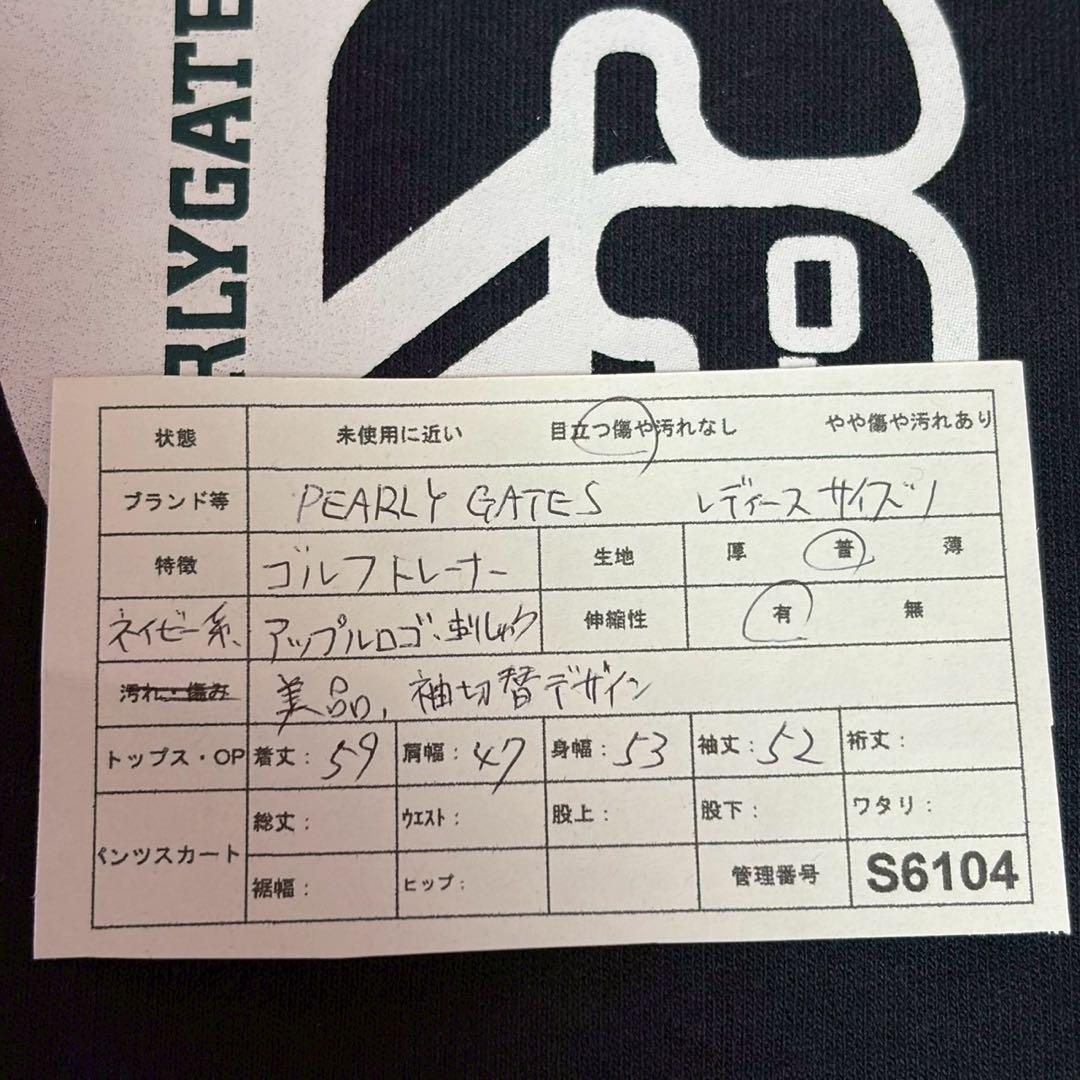 RLYGATE
状態 未使用に近い 目立つ傷や汚れなし やや傷や汚れあり
ブランド等 PEARLY GATES レディース サイズ1
特徴 ゴルフトレーナー 生地 厚 普 薄
ネイビー系、 アップルロゴ、刺しゅう 伸縮性 有 無
汚れ・傷み 美品、袖切替デザイン
トップス・OP 着丈:59 肩幅:47 身幅:53 袖丈:52 裄丈:
パンツスカート 総丈: ウエスト: 股上: 股下: ワタリ:
裾幅: ヒップ: 管理番号 S6104